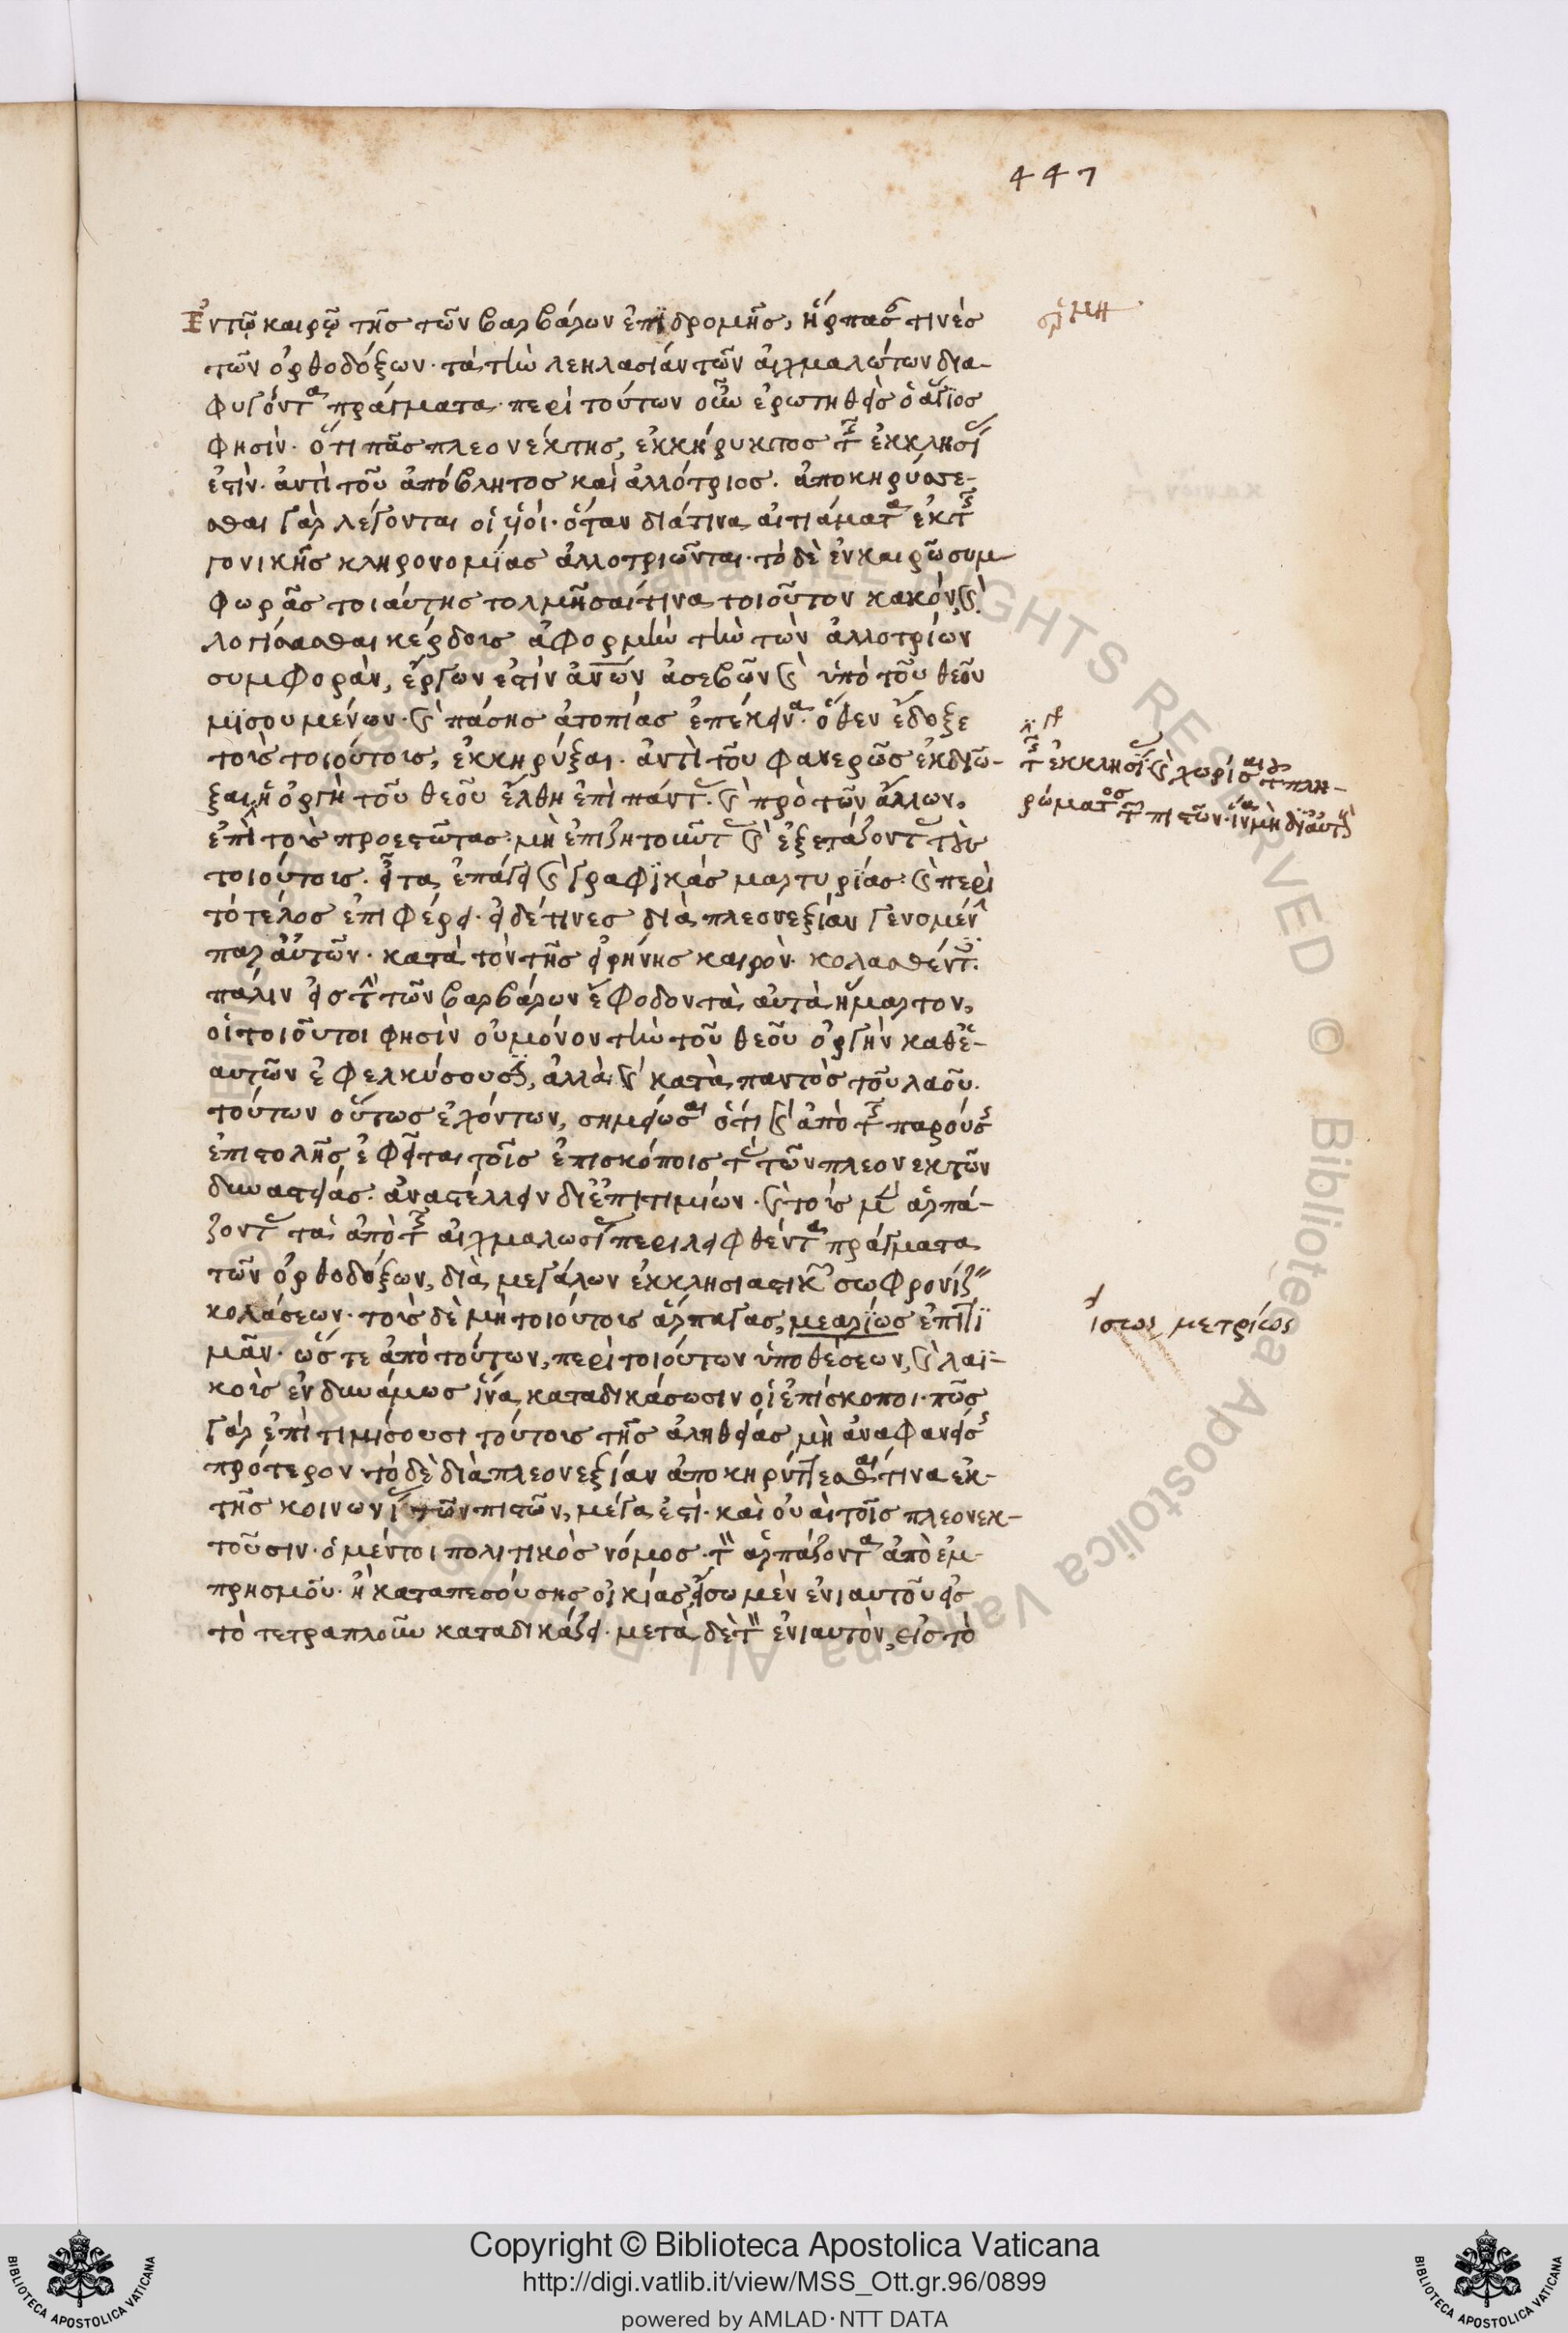 447
Ἐν τῷ καιρῷ τῆς τῶν βαρβάρων ἐπιδρομῆς, ἥρπασ τινὲς
τῶν ὀρθοδόξων· τὰ τὴν λεηλασίαν τῶν αἰχμαλώτων δια-
φυγόντα πράγματα· περὶ τούτων οὖν ἐρωτηθεὶς ὁ ἅγιος
φησίν· ὅτι πᾶς πλεονέκτης, ἐκκήρυκτος τῆς ἐκκλησί
ἐστὶν· ἀντὶ τοῦ ἀπόβλητος καὶ ἀλλότριος· ἀποκηρύσσε-
σθαι γὰρ λέγονται οἱ υἱοὶ· ὅταν διά τινα αἰτιάματα ἐκ τῆς
γονικῆς κληρονομίας ἀλλοτριῶνται· τὸ δὲ ἐν καιρῷ συμ-
φορᾶς τοιαύτης τολμῆσαί τινα τοιοῦτον κακόν, καὶ
λογίσασθαι κέρδους ἀφορμὴν τὴν τῶν ἀλλοτρίων
συμφοράν, ἔργων ἐστὶν ἀνων ἀσεβῶν καὶ ὑπὸ τοῦ θεοῦ
μισουμένων· καὶ πάσης ἀτοπίας ἐπέκεινα· ὅθεν ἔδοξε
τοὺς τοιούτους, ἐκκηρύξαι· ἀντὶ τοῦ φανερῶς ἐκδιῶ-
ξαι
τῆς ἐκκλησί καὶ χωρίσαι τοῦ πλη-
ρώματος τῶν πιστῶν· ἵνα μὴ δι αὐτοὺς
ἡ ὀργὴ τοῦ θεοῦ ἔλθη ἐπὶ πάντας· καὶ πρὸ τῶν ἄλλων,
ἐπὶ τοὺς προεστῶτας· μὴ ἐπιζητοῦντας καὶ ἐξετάζοντας τοὺς
τοιούτους· εἶτα ἐπάγει καὶ γραφικὰς μαρτυρίας· καὶ περὶ
τὸ τέλος ἐπιφέρει· εἰ δέ τινες διὰ πλεονεξίαν γενομένην
παρ αὐτῶν· κατὰ τὸν τῆς εἰρήνης καιρὸν· κολασθέντες
πάλιν εἰς τὴν τῶν βαρβάρων ἔφοδον τὰ αὐτὰ ἥμαρτον,
οἱ τοιοῦτοι φησὶν οὐ μόνον τὴν τοῦ θεοῦ ὀργὴν καθ ἑ-
αυτῶν ἐφελκύσουσιν, ἀλλὰ καὶ κατὰ παντὸς τοῦ λαοῦ.
τούτων οὕτως ἐχόντων, σημείωσαι ὅτι καὶ ἀπὸ τῆς παρούσης
ἐπιστολῆς ἐφεῖται τοῖς ἐπισκόποις τὰς τῶν πλεονεκτῶν
δυναστείας· ἀναστέλλειν δι ἐπιτιμίων· καὶ τοὺς μὲν ἁρπά-
ζοντας τὰ ἀπὸ τῆς αἰχμαλωσίας περιλειφθέντα πράγματα
τῶν ὀρθοδόξων, διὰ μεγάλων ἐκκλησιαστικῶν σωφρονίζειν
κολάσεων· τοὺς δὲ μὴ τοιούτους ἅρπαγας, μεαρίως ἐπιτι
ἴσως μετρίως
μᾶν· ὥστε ἀπὸ τούτων, περὶ τοιούτων ὑποθέσεων, καὶ λαϊ-
κοὺς ἐνδυνάμως ἵνα καταδικάσωσιν οἱ ἐπίσκοποι· πῶς
γὰρ ἐπιτιμήσουσι τούτοις τῆς ἀληθείας μὴ ἀναφανείσης
πρότερον τὸ δὲ διὰ πλεονεξίαν ἀποκηρύττεσθαί τινα ἐκ
τῆς κοινωνί τῶν πιστῶν, μέγα ἐστί· καὶ οὐαὶ τοῖς πλεονεκ-
τοῦσιν· ὁ μέντοι πολιτικὸς νόμος· τὸν ἁρπάζοντα ἀπὸ ἐμ-
πρησμοῦ· ἢ καταπεσούσης οἰκίας, εἴσω μὲν ἐνιαυτοῦ εἰς
τὸ τετραπλοῦν καταδικάζει· μετὰ δὲ τὸν ἐνιαυτὸν, εἰς τὸ
Copyright © Biblioteca Apostolica Vaticana
http://digi.vatlib.it/view/MSS_Ott.gr.96/0899
powered by AMLAD·NTT DATA
BIBLIOTECA APOSTOLICA VATICANA
BIBLIOTECA APOSTOLICA VATICANA